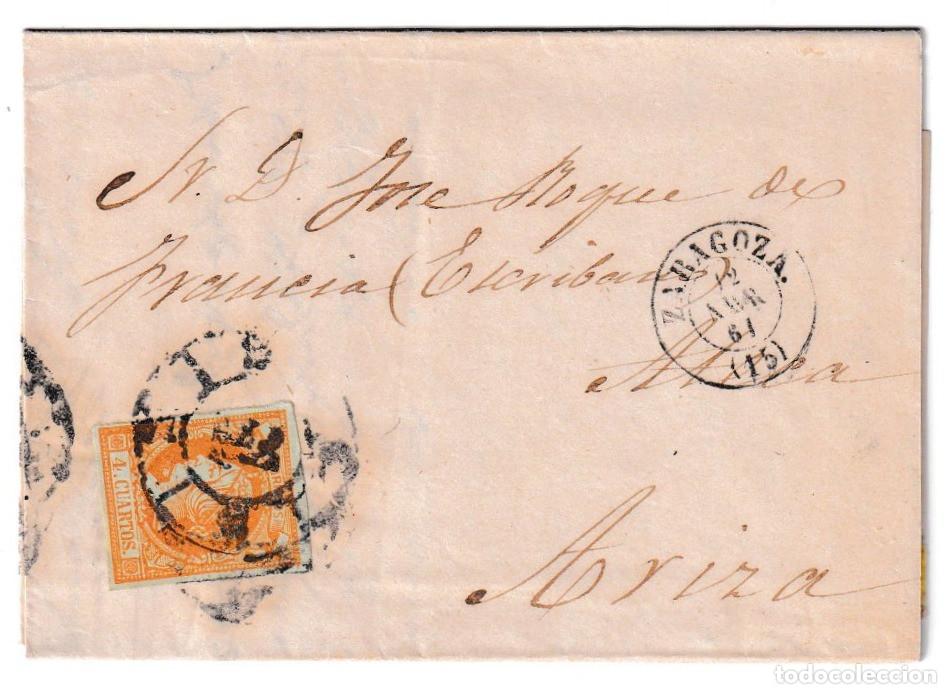 Sr. D. Jose Roque de
Francia (Escribano)
Ateca
Ariza
ZARAGOZA.
12
ABR
61
(15)
4. CUARTOS.
todocoleccion